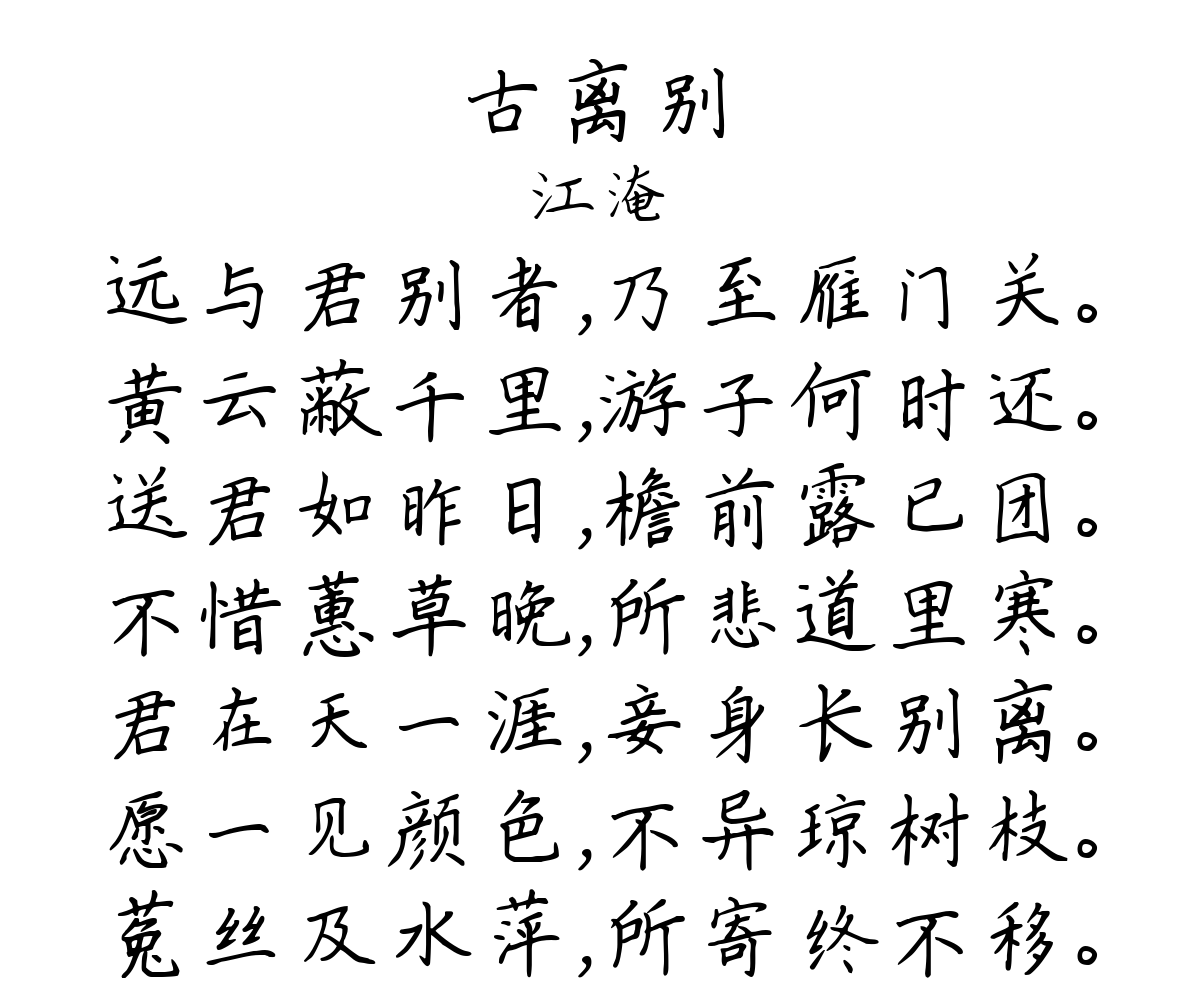 古离别
江淹
远与君别者,乃至雁门关。
黄云蔽千里,游子何时还。
送君如昨日,檐前露已团。
不惜蕙草晚,所悲道里寒。
君在天一涯,妾身长别离。
愿一见颜色,不异琼树枝。
菟丝及水萍,所寄终不移。